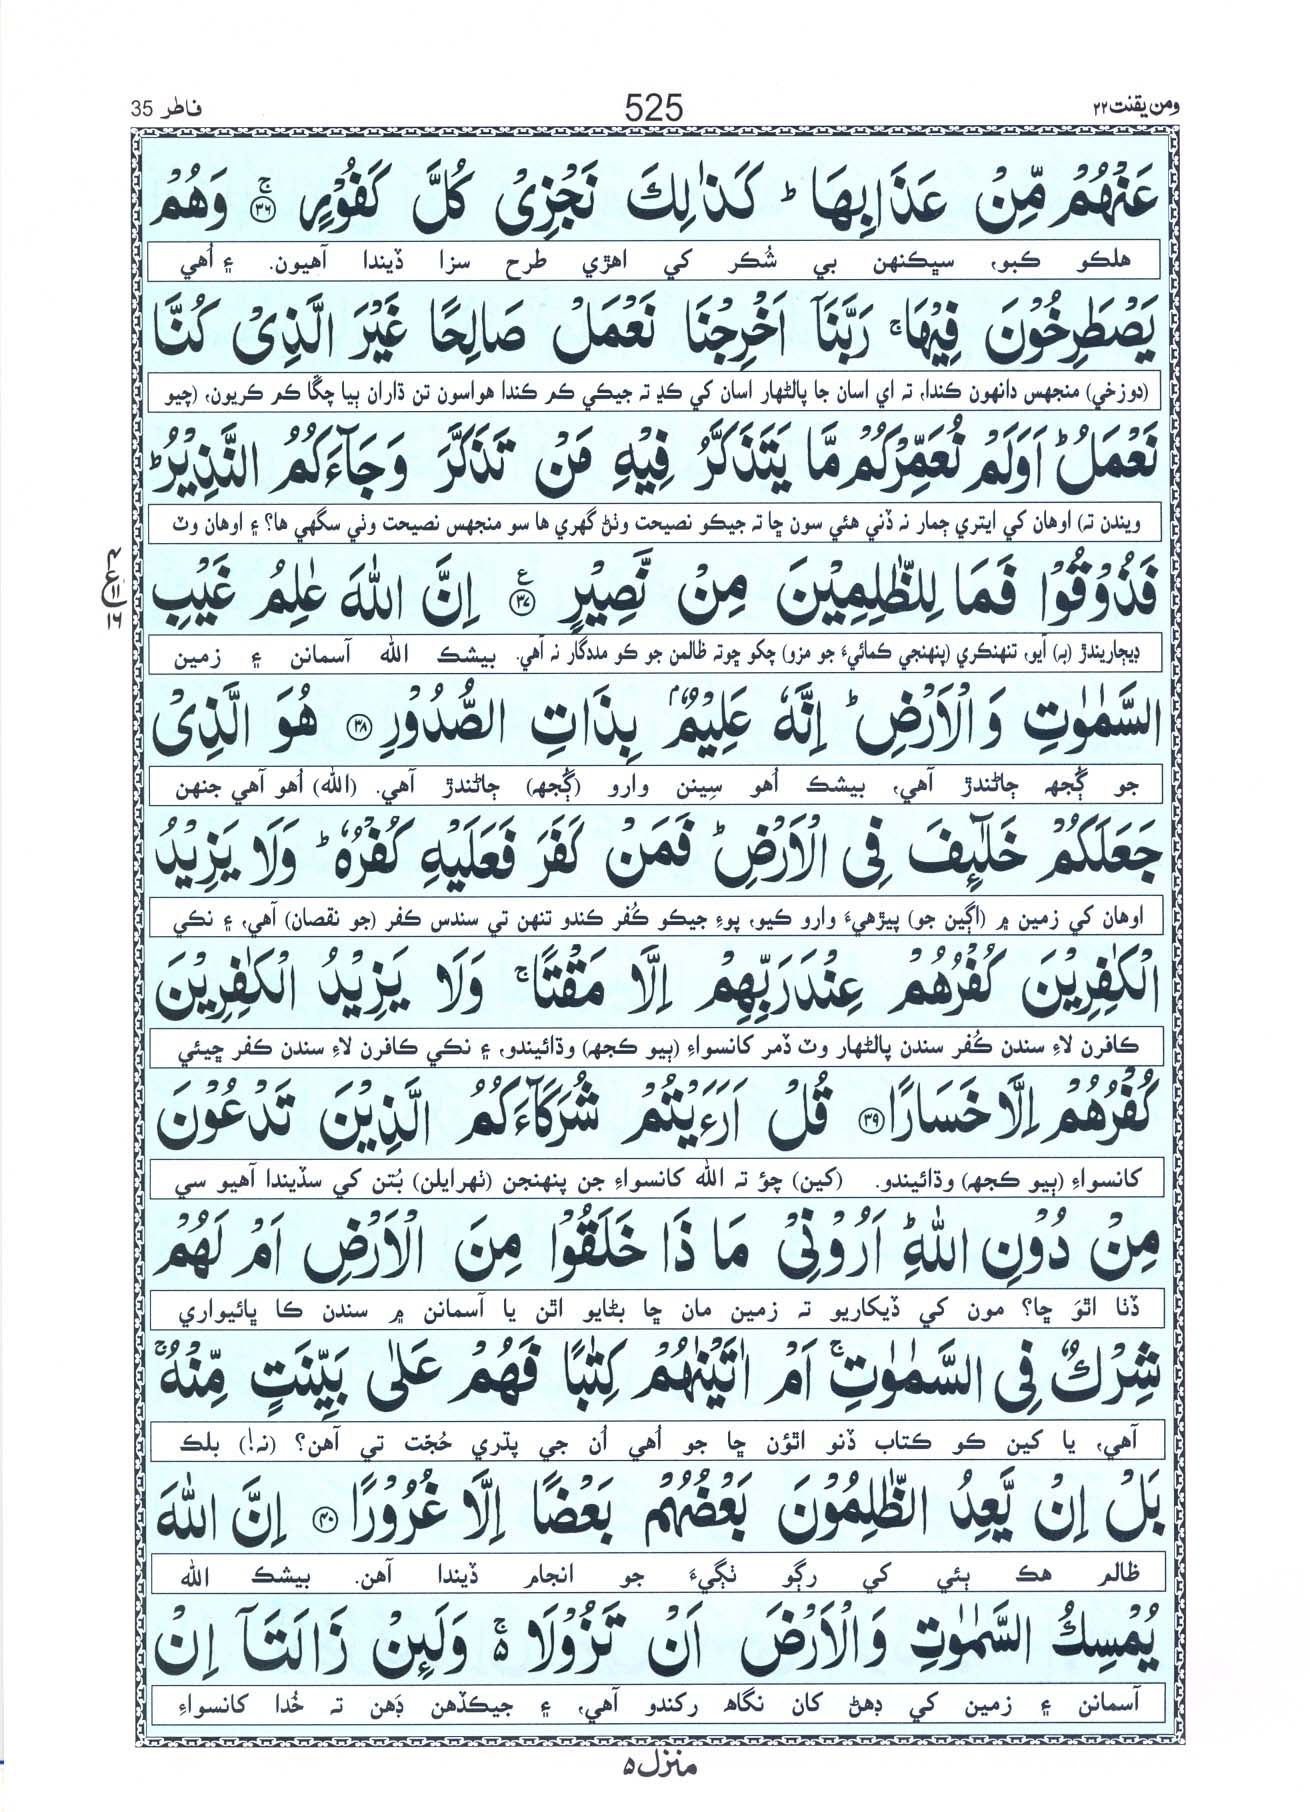 ومن يقنت ٢٢
525
فاطر 35
عَنْهُمْ مِّنْ عَذَابِهَا ؕ كَذٰلِكَ نَجْزِىْ كُلَّ كَفُوْرٍ ۚ﴿۳۶﴾ وَهُمْ
هلڪو ڪبو، سڀڪنهن بي شُڪر کي اهڙي طرح سزا ڏيندا آهيون. ۽ اُهي
يَصْطَرِخُوْنَ فِيْهَا ۚ رَبَّنَاۤ اَخْرِجْنَا نَعْمَلْ صَالِحًا غَيْرَ الَّذِىْ كُنَّا
(دوزخي) منجهس دانهون ڪندا، ته اي اسان جا پالڻهار اسان کي ڪڍ ته جيڪي ڪم ڪندا هواسون تن ڌاران ٻيا چڱا ڪم ڪريون، (چيو
نَعْمَلُ ؕ اَوَلَمْ نُعَمِّرْكُمْ مَّا يَتَذَكَّرُ فِيْهِ مَنْ تَذَكَّرَ وَجَآءَكُمُ النَّذِيْرُ ؕ
ويندن ته) اوهان کي ايتري ڄمار نه ڏني هئي سون ڇا ته جيڪو نصيحت وٺڻ گهري ها سو منجهس نصيحت وٺي سگهي ها؟ ۽ اوهان وٽ
فَذُوْقُوْا فَمَا لِلظّٰلِمِيْنَ مِنْ نَّصِيْرٍ ۠﴿۳۷﴾ اِنَّ اللّٰهَ عٰلِمُ غَيْبِ
ع
۱۱
۱۶
ڊيڄاريندڙ (به) آيو، تنهنڪري (پنهنجي ڪمائيءَ جو مزو) چکو ڇوته ظالمن جو ڪو مددگار نه آهي. بيشڪ الله آسمانن ۽ زمين
السَّمٰوٰتِ وَالْاَرْضِ ؕ اِنَّهٗ عَلِيْمٌۢ بِذَاتِ الصُّدُوْرِ ﴿۳۸﴾ هُوَ الَّذِىْ
جو ڳُجهه ڄاڻندڙ آهي، بيشڪ اُهو سِينن وارو (ڳُجهه) ڄاڻندڙ آهي. (الله) اُهو آهي جنهن
جَعَلَكُمْ خَلٰٓئِفَ فِى الْاَرْضِ ؕ فَمَنْ كَفَرَ فَعَلَيْهِ كُفْرُهٗ ؕ وَلَا يَزِيْدُ
اوهان کي زمين ۾ (اڳين جو) پيڙهيءَ وارو ڪيو، پوءِ جيڪو ڪُفر ڪندو تنهن تي سندس ڪفر (جو نقصان) آهي، ۽ نڪي
الْكٰفِرِيْنَ كُفْرُهُمْ عِنْدَ رَبِّهِمْ اِلَّا مَقْتًا ۚ وَلَا يَزِيْدُ الْكٰفِرِيْنَ
ڪافرن لاءِ سندن ڪُفر سندن پالڻهار وٽ ڏمر کانسواءِ (ٻيو ڪجهه) وڌائيندو، ۽ نڪي ڪافرن لاءِ سندن ڪفر ڇيئي
كُفْرُهُمْ اِلَّا خَسَارًا ﴿۳۹﴾ قُلْ اَرَءَيْتُمْ شُرَكَآءَكُمُ الَّذِيْنَ تَدْعُوْنَ
کانسواءِ (ٻيو ڪجهه) وڌائيندو. (کين) چؤ ته الله کانسواءِ جن پنهنجن (ٺهرايلن) بُتن کي سڏيندا آهيو سي
مِنْ دُوْنِ اللّٰهِ ؕ اَرُوْنِىْ مَاذَا خَلَقُوْا مِنَ الْاَرْضِ اَمْ لَهُمْ
ڏٺا اٿوَ ڇا؟ مون کي ڏيکاريو ته زمين مان ڇا بڻايو اٿن يا آسمانن ۾ سندن ڪا ڀائيواري
شِرْكٌ فِى السَّمٰوٰتِ ۚ اَمْ اٰتَيْنٰهُمْ كِتٰبًا فَهُمْ عَلٰى بَيِّنَتٍ مِّنْهُ ۚ
آهي، يا کين ڪو ڪتاب ڏنو اٿؤن ڇا جو اُهي اُن جي پڌري حُجّت تي آهن؟ (نه!) بلڪ
بَلْ اِنْ يَّعِدُ الظّٰلِمُوْنَ بَعْضُهُمْ بَعْضًا اِلَّا غُرُوْرًا ﴿۴۰﴾ اِنَّ اللّٰهَ
ظالم هڪ ٻئي کي رڳو ٺڳيءَ جو انجام ڏيندا آهن. بيشڪ الله
يُمْسِكُ السَّمٰوٰتِ وَالْاَرْضَ اَنْ تَزُوْلَا ۵ۚ وَلَئِنْ زَالَتَاۤ اِنْ
آسمانن ۽ زمين کي ڊهڻ کان نگاھ رکندو آهي، ۽ جيڪڏهن ڊَهن ته خُدا کانسواءِ
منزل ۵